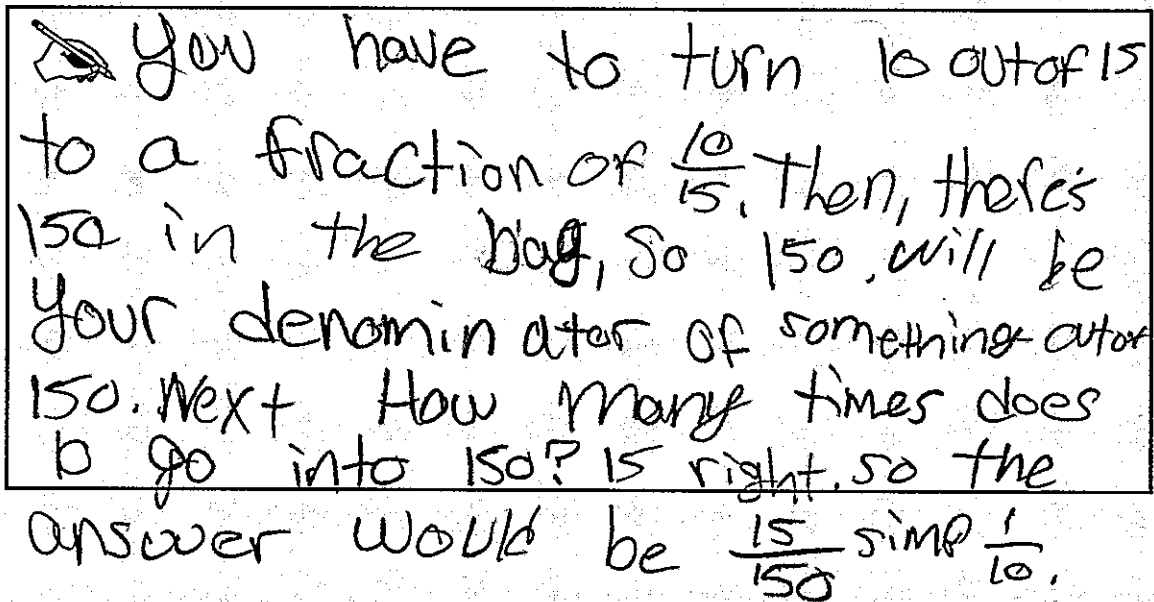 You have to turn 10 out of 15
to a fraction of 10/15. Then, there's
150 in the bag, So 150 will be
Your denominator of something out of
150. Next How many times does
10 go into 150? 15 right. so the
answer would be 15/150 simp 1/10.